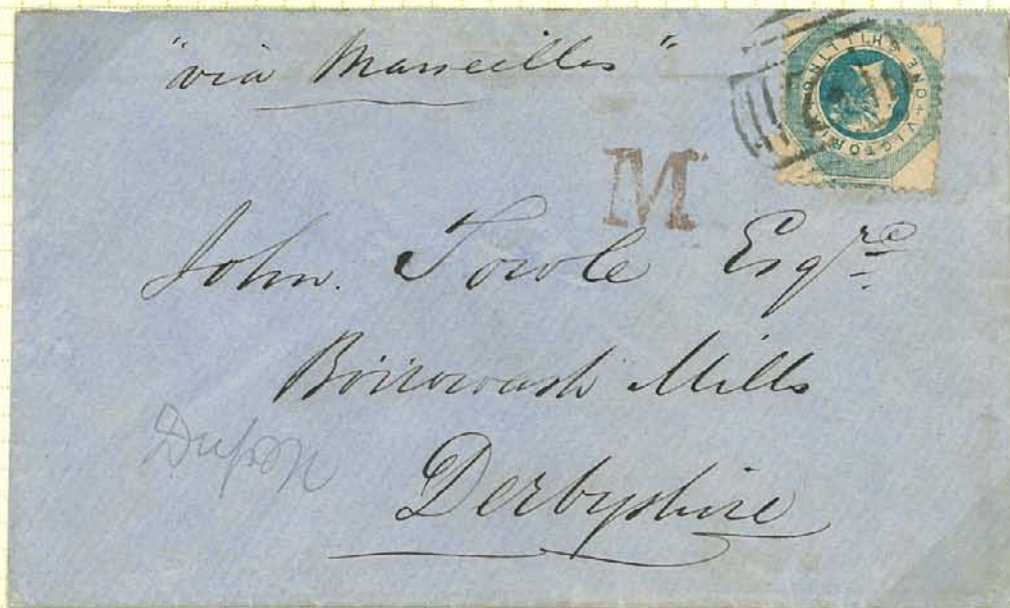 "via Marseilles"
ONE + VICTORIA + SHILLING
M
John. Towle Esqre
Borrowash Mills
Derbyshire